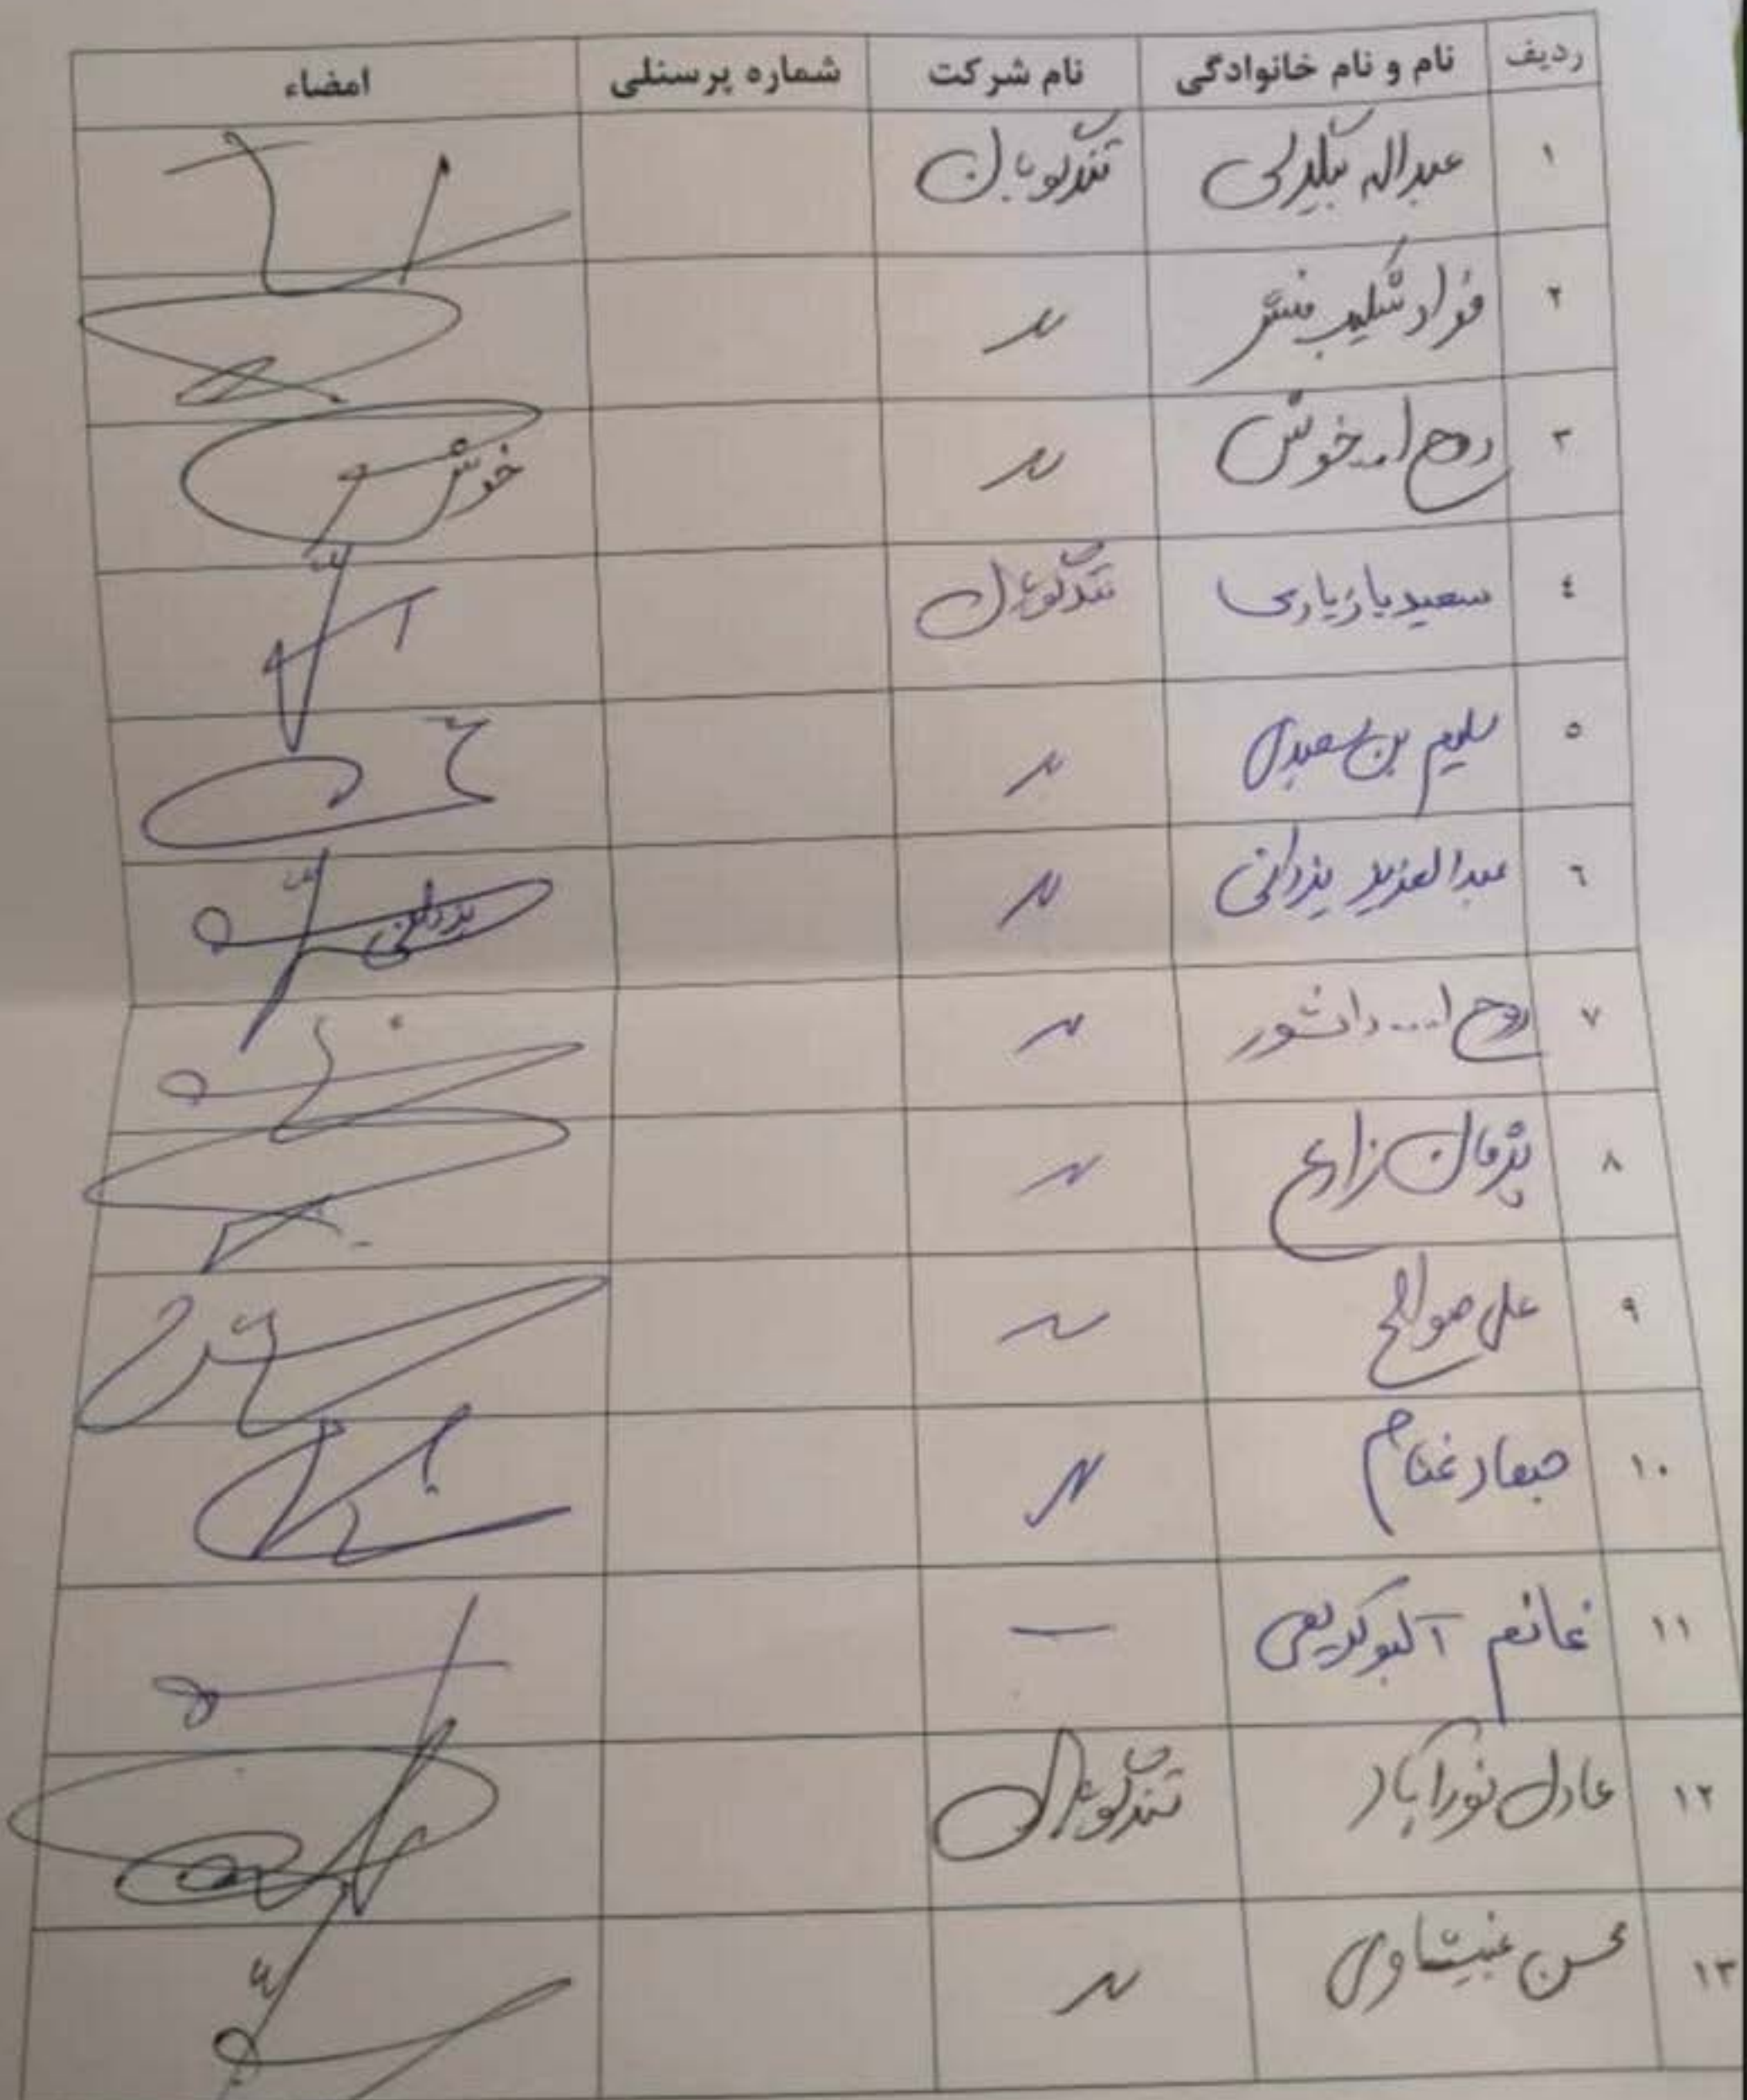 ردیف نام و نام خانوادگی نام شرکت شماره پرسنلی امضاء
۱ عبداله تندگویان
۲ فواد شکیب منش 〃
۳ روح ا... خوش 〃 خوش
٤ سعید بازیاری تندگویان
٥ سلیم بن سعیدی 〃
٦ عبدالعزیز یزدانی 〃 یزدانی
۷ روح ا... دانشور 〃
۸ پژمان زارع 〃
۹ علی صوالح 〃
۱۰ غنام 〃
۱۱ غانم آلبوکریمی —
۱۲ عادل نورآباد تندگویان
۱۳ محسن 〃